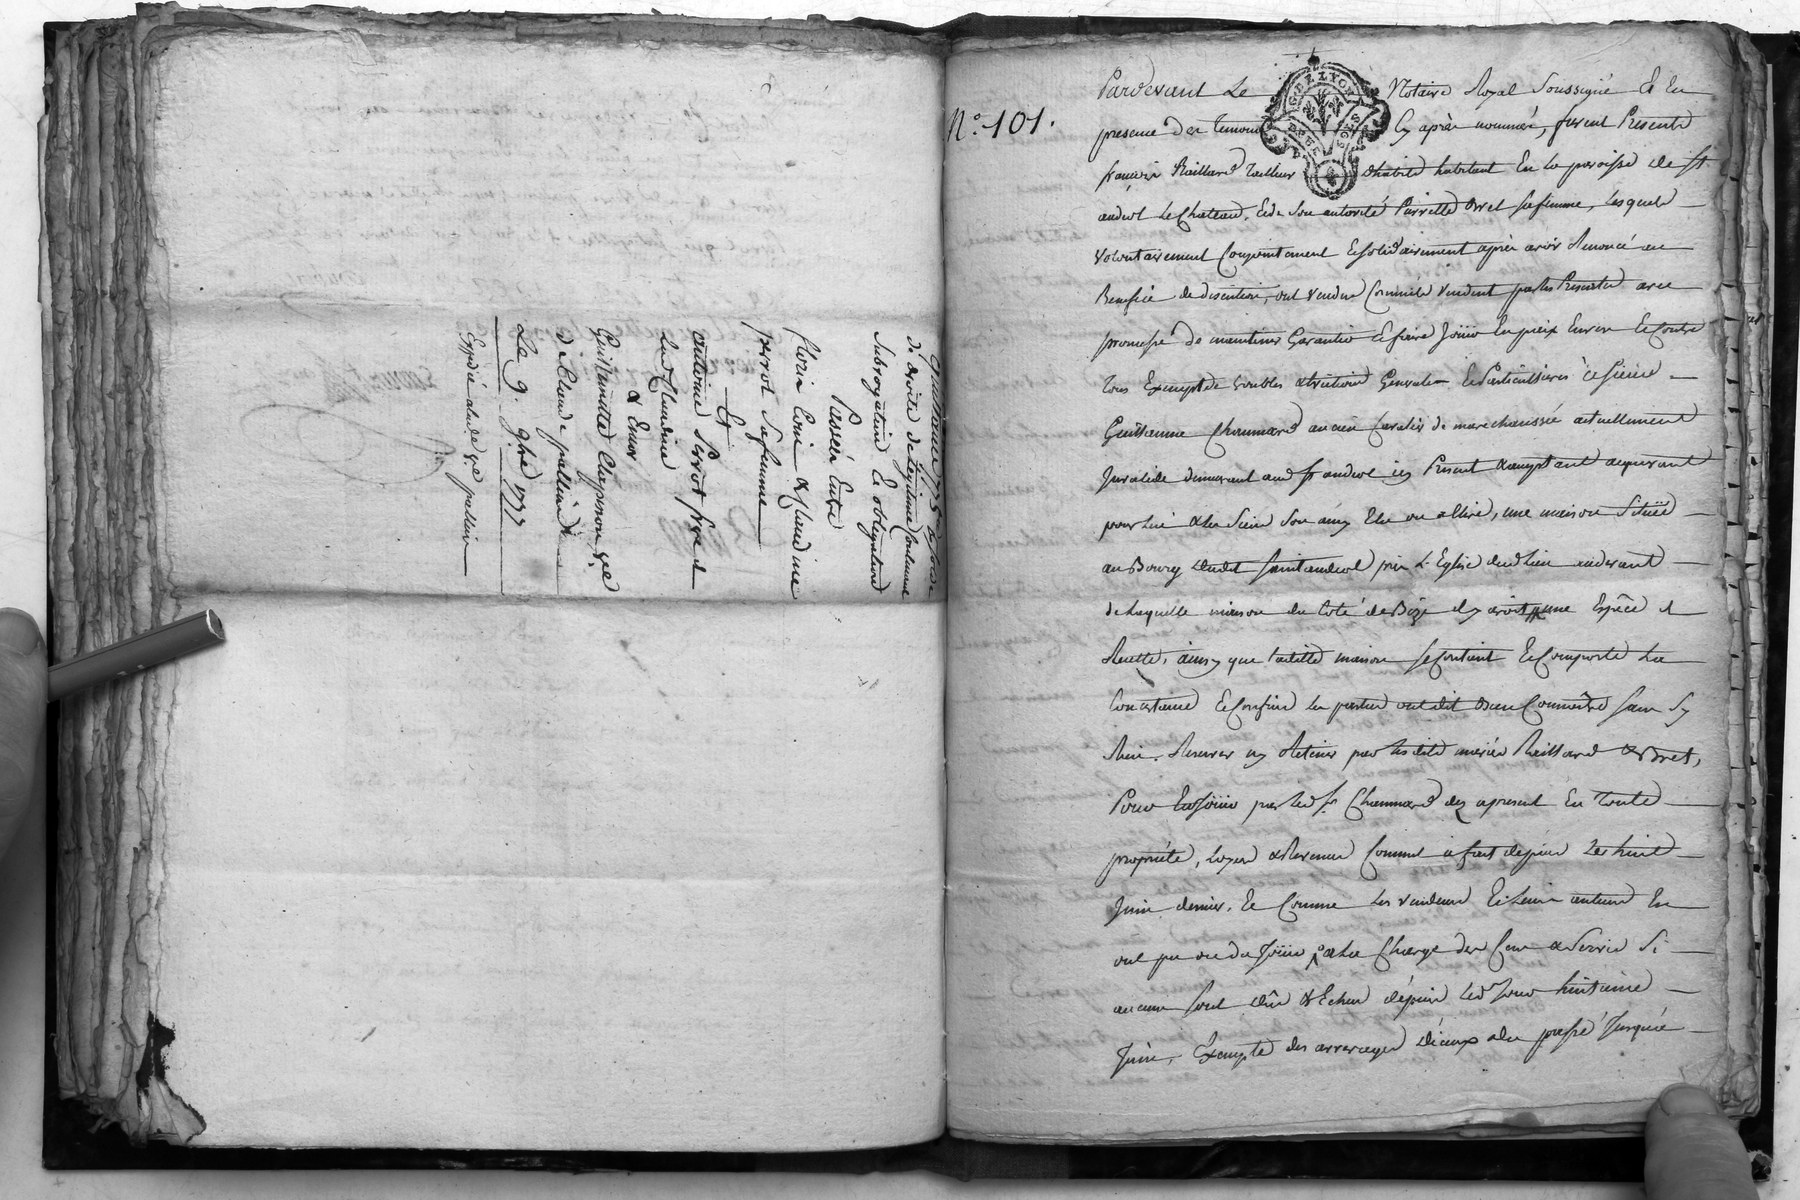 Quittance 775 ₶
de droits de Legitime Contenant
Subrogation Et obligation
Passée Entre
florin & Claudine
perrot Sa femme
Et
antoine Perrot frere de
Lad. Claudine
& Encor
Guillaumette Chapiron ve
de Claude pallien
Le 9. 9bre 1777
Expedié alad. ve pallien
N.° 101.
G. DE LYON
Pardevant Le Notaire Royal Soussigné Et En
presence des Temoins Cy après nommés, furent Presents
françois Raillard Tailleur d'habits habitant En la paroisse de St.
andeol Le Chateau, Et de Son autorité Pierrette Bret Sa femme, Lesquels
volontairement Conjointement Et solidairement après avoir Renoncé au
Benefice de discution, ont vendu Comme ils vendent par les Presentes avec
promesse de maintenir Garantir Et faire Jouir Envers Et Contre
tous Exempte de troubles Generales Et Particulieres à Sieur
Guillaume Chaumard ancien Cavalier de marechaussée actuellement
Invalide demeurant aud. St. andeol icy Present & acceptant acquerant
pour Lui & les Siens Son amy Elu ou a Elire, une maison Située
au Bourg dudit Saint andeol près L'Eglise dud. lieu audevant
de Laquelle maison du Coté de Bize il y avoit une Espèce de
Ruette, ainsy que ladite maison Se Contient Et Comporte
Et Confins les parties ont dit Bien Connoitre Sans S'y
Rien Reserver ny Retenir par lesdits mariés Raillard & Bret,
Pour En Jouir par led. Sr. Chaumard des apresent En Toute
propriété, Loyers & Revenus Comme a fait depuis Le huit
Juin dernier, Et Comme Les vendeurs Et Leurs auteurs En
ont pu ou du Jouir, a La Charge des Cens & Servis Si
aucuns Sont dûs & Echus depuis led. Jour huitieme
Juin, Exempte des arrerages d'iceux du passé Jusqu'à